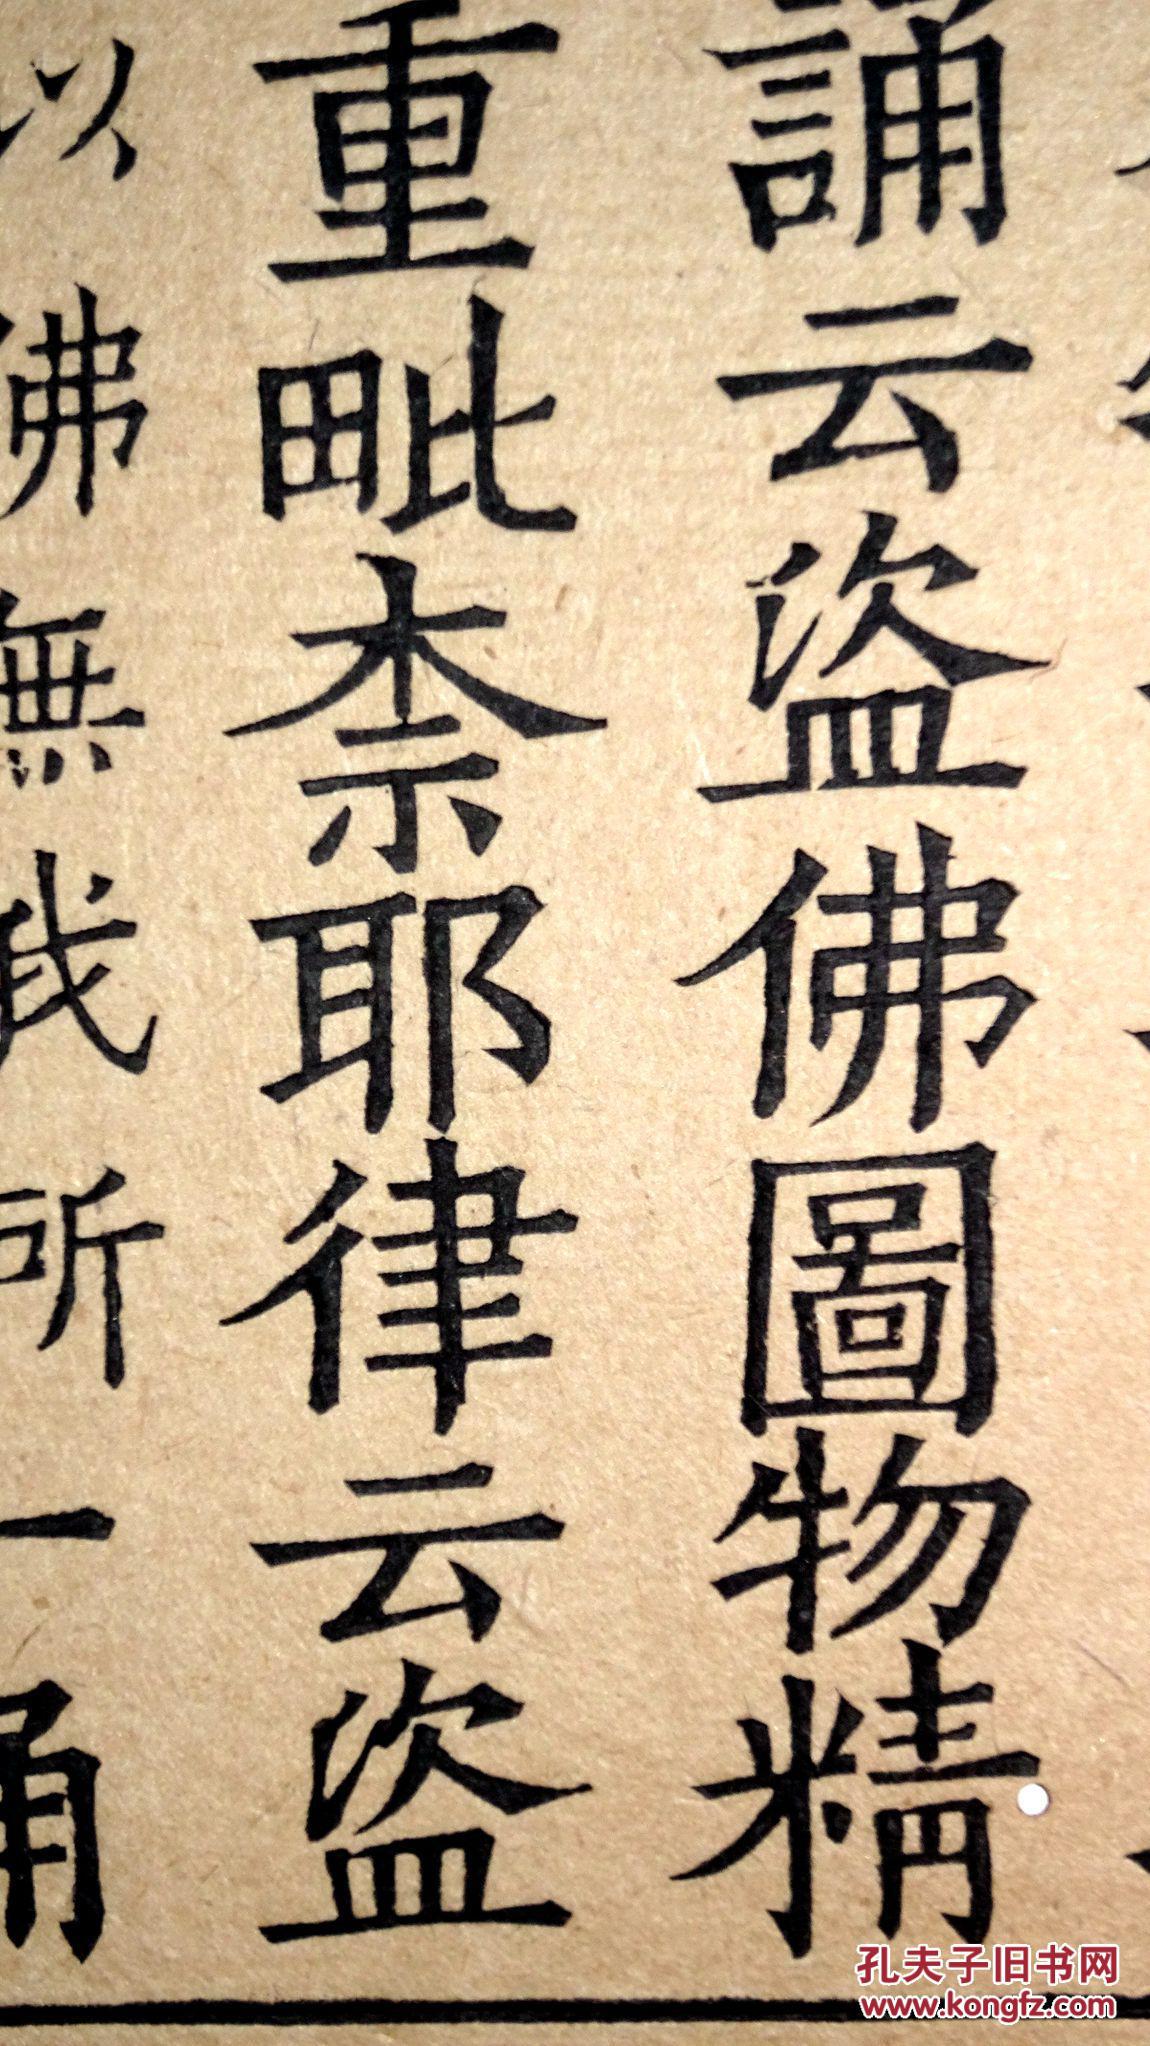 誦云盜佛圖物精
重毗柰耶律云盜
以佛無我所一誦
孔夫子旧书网
www.kongfz.com